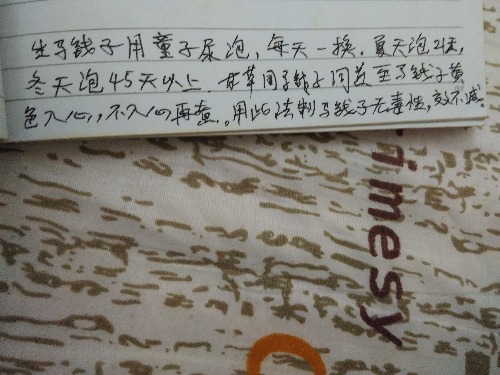 生马钱子用童子尿泡,每天一换.夏天泡21天,
冬天泡45天以上.甘草同马钱子同煮至马钱子黄
色入心,不入心再煮。用此法制马钱子无毒性,效不减.
imesy